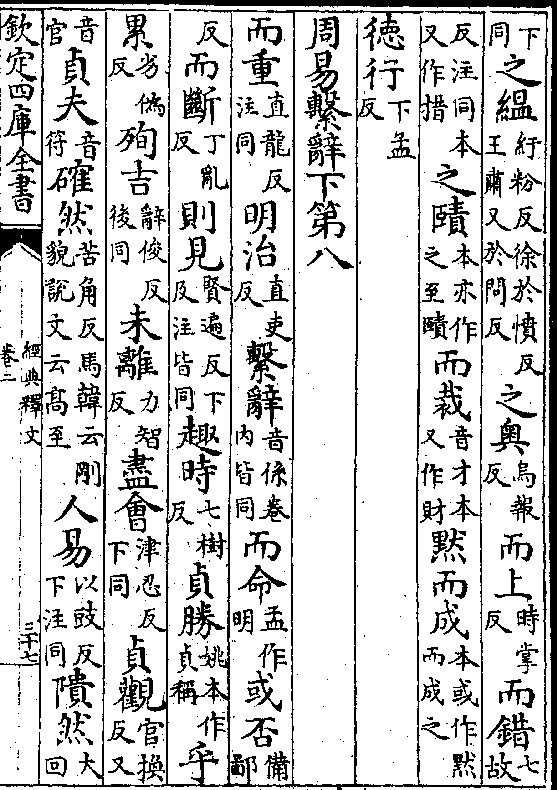 下同之緼紆粉反徐於憤反王肅又於問反之奥烏報反而上時掌反而錯七故
反注同本又作措之賾本亦作之至賾而裁音才本又作財黙而成本或作黙而成之
徳行下孟反
周易繫辭下第八
而重直龍反注同明治直吏反繫辭音係卷内皆同而命孟作明或否備鄙
反而斷丁亂反則見賢遍反下及注皆同趣時七樹反貞勝姚本作貞稱乎
累劣偽反殉吉辭俊反後同未離力智反盡㑹津忍反下同貞觀官換反又
音官貞夫音符確然苦角反馬韓云剛貌説文云髙至人易以豉反下注同隤然大回
欽定四庫全書
經典釋文
卷二
三十七